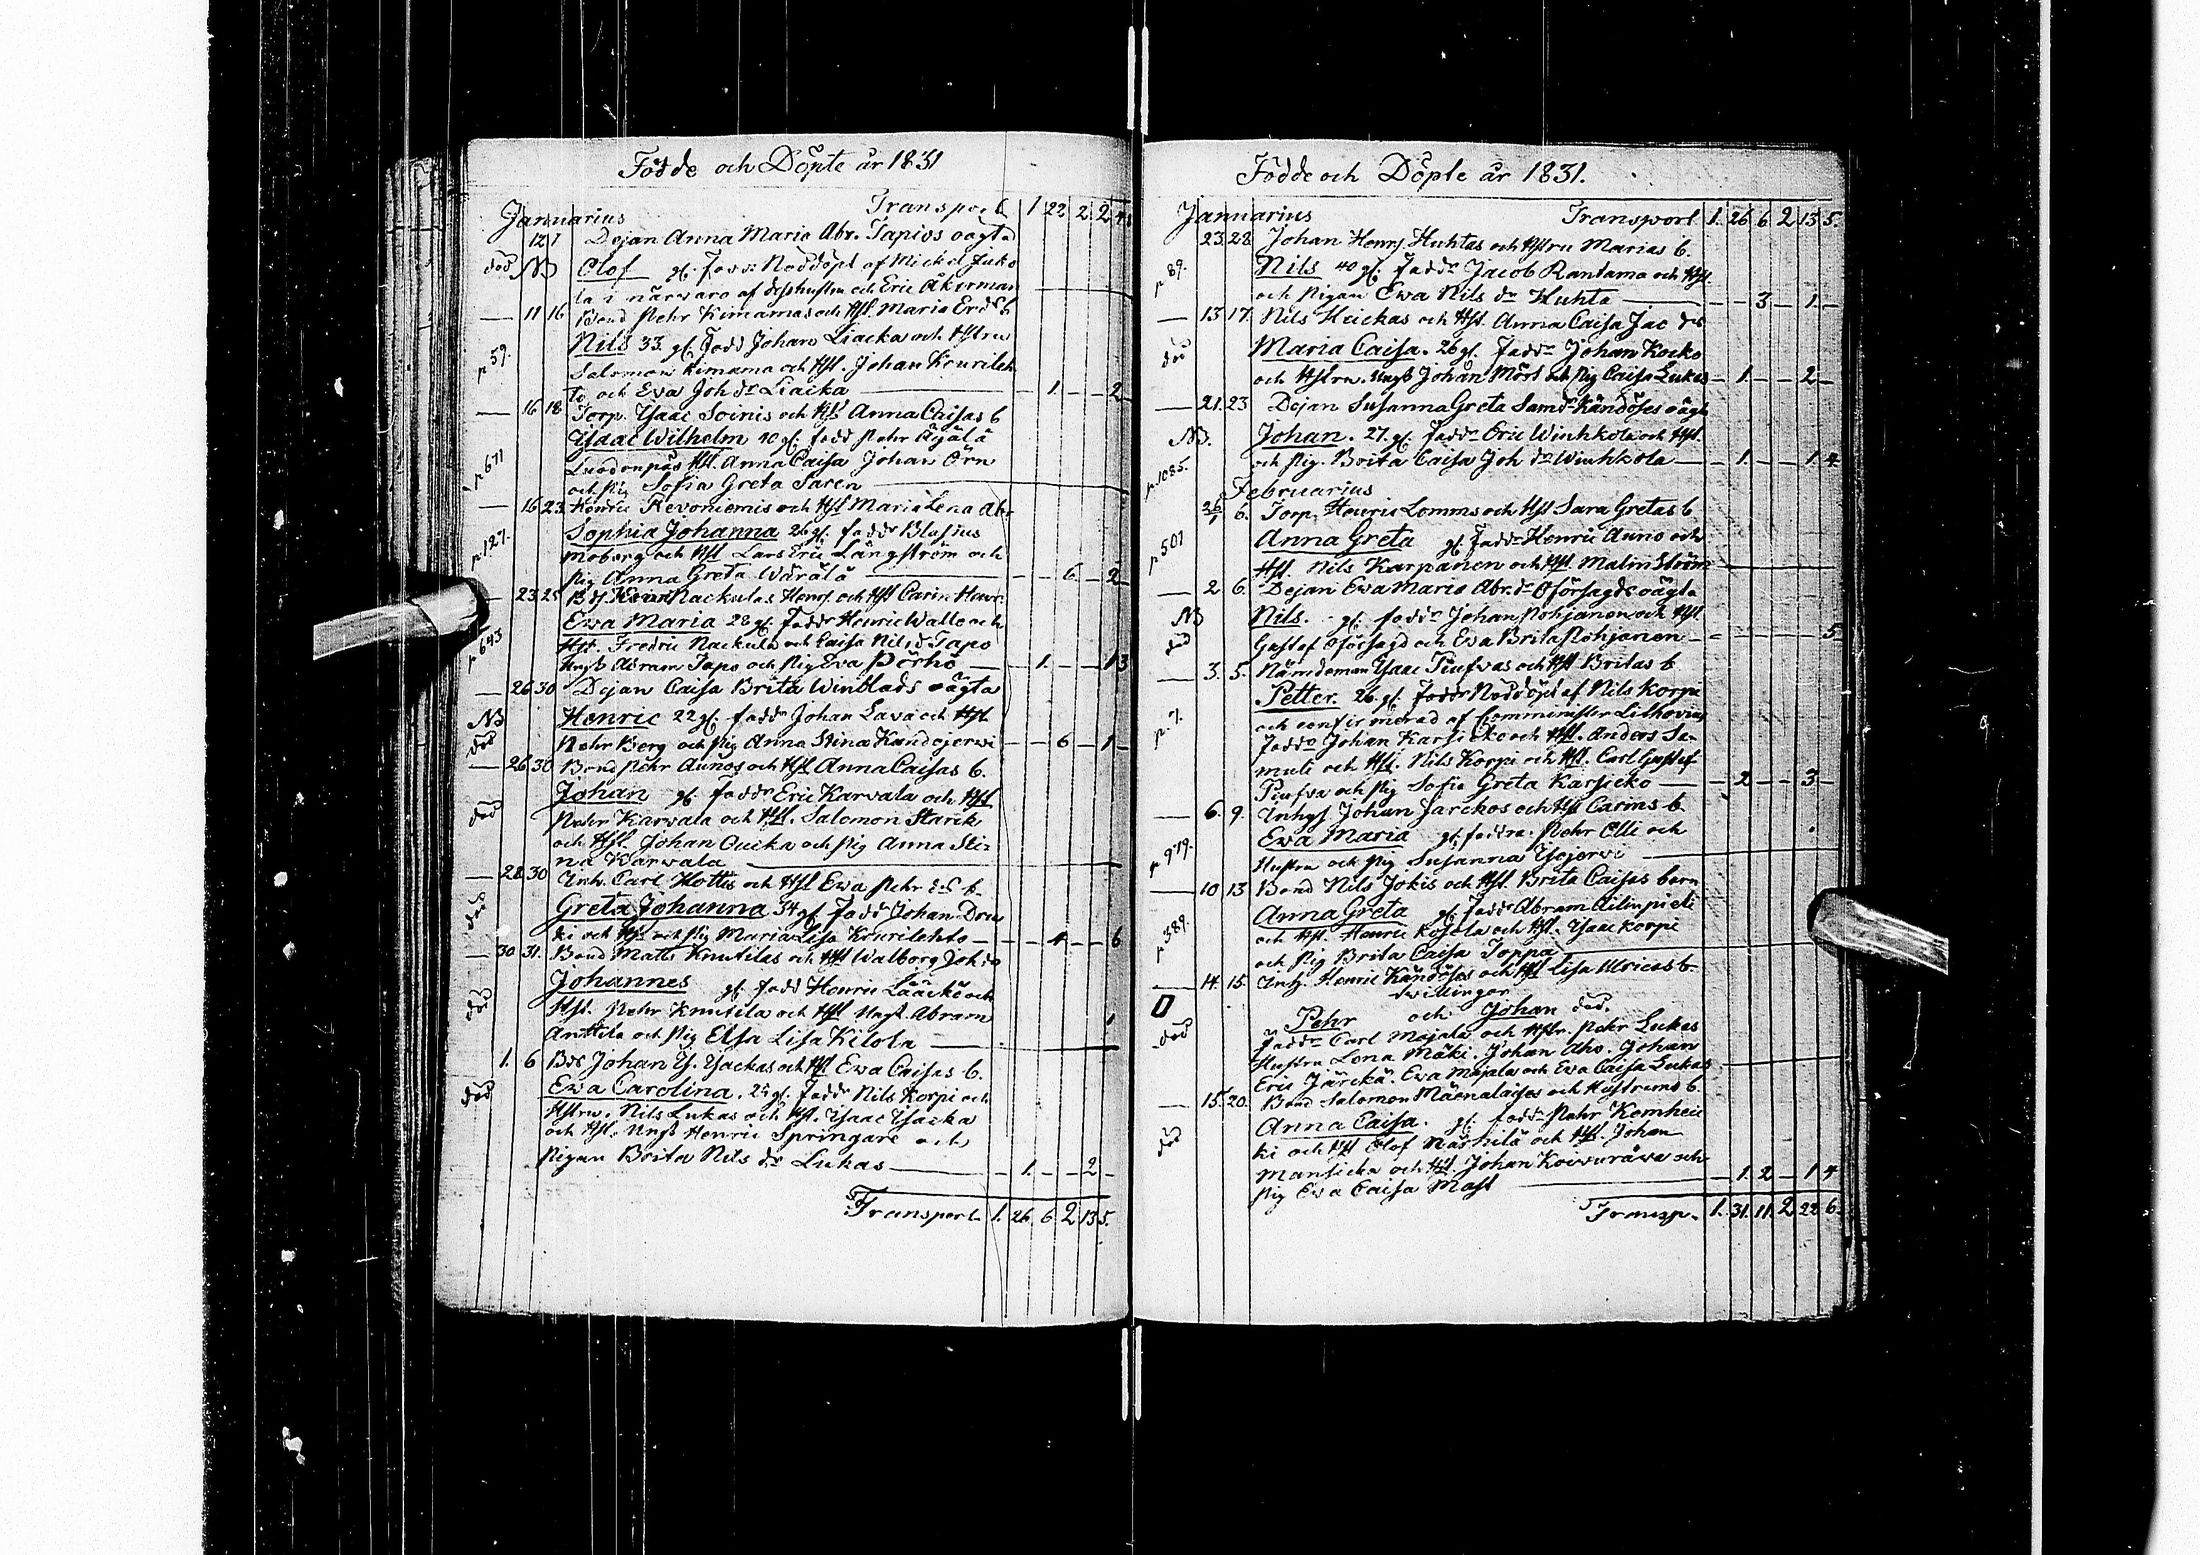 Födde och Döpte år 1831
Januarius Transport 1 22 2 2
12 7 Dejan Anna Maria Abr. Tapios oägta
död NB Olof gl. Fadd. Nöddöpt af Mickel Juko
la i närwaro af dess hustru och Eric Åkerman
11 16 Bond Pehr Kimamas och Hst. Maria Erics b
Nils 33. gl. Fadd Johan Liacka och Hstru
p 59. Salomon Kimama och Hst. Johan Kourileh
to och Eva Joh dr Liacka 1 2
16 18 Torp. Isaac Soinis och Hst Anna Caisas b
Isaac Wilhelm 40 gl. Fadd Pehr Äijälä
p 671 Hst. Anna Caisa Johan Örn
och Pig Sofia Greta Saren
16 23 Henric Revoniemis och Hst Maria Lena Abr
Sophia Johanna 26 gl. Faddr Blasius
p. 127. Moberg och Hst Lars Eric Långström och
Pig Anna Greta Wärälä 6 2
23 25 Nackulas Henr. och Hst Carin
Ewa Maria 28 gl. Faddr Henric Walle och
p 693 Hst. Fredric Nackula och Caisa Nils d Tapo
Yngl Abram Tapo och Pig Eva Pörhö 1 1 3
26 30 Dejan Caisa Brita Winblads oägta
NB Henric 22 gl. Faddr Johan Lava och Hst
död Pehr Berg och Pig Anna Stina Kandejerwi 6 1
26 30 Bond Pehr Aunos och Hst Anna Caisas b.
Johan gl Faddr Eric Karvala och Hst
död Pehr Karwala och Hst. Salomon Starck
och Hst. Johan Oucka och Pig Anna Sti-
na Karwala
28 30 Inh. Carl Hottis och Hst Ewa Pehr ds b.
död Greta Johanna 34 gl Faddr Johan
ki och Hst och Pig Maria Lisa Kourilehto 4 6
30 31. Bond Matts Knutilas och Hst Walborg Joh ds
Johannes gl. Fadd Henric Lääckö och
död Hst. Pehr Knutila och Hst Yngl. Abram
Anttila och Pig Elsa Lisa Kilola 1
1. 6 Bds Johan Y. Yackas och Hst Ewa Caisas b.
död Ewa Carolina. 25 gl. Faddr Nils Korpi och
Hstru. Nils Lukas och Hst. Isaac Yacka
och Hst. Yngl Henric Springare och
Pigan Brita Nils dr Lukas 1 2
Transport 1. 26 6 2 13 5.
Födde och Döpte år 1831.
Januarius Transport 1. 26 6 2 13 5.
23. 28 Johan Henrs. Huhtas och Hstru Marias b.
p 89. Nils 40 gl. Faddr Jacob Rantama och Hst.
och Pigan Ewa Nils dr Huhta 3 1
13. 17. Nils Heickas och Hst. Anna Caisa Jac ds
död Maria Caisa. 26 gl. Faddr Johan Kocko
och Hstru. Yngl Johan Mörs och Pig Caisa Lukas 1 2
21. 23 Dejan Susanna Greta Sam dr Kändöses oägta
NB. Johan. 27. gl. Faddr Eric Winhkola och Hst.
p. 1085. och Pig. Brita Caisa Joh dr Winhkola 1 1 4
Februarius
26/1 6. Torp. Henric Lomms och Hst Sara Gretas b
p 507 Anna Greta gl. Faddr Henric Auno och
Hst. Nils Karpanen och Hst. Malin Ström
2 6. Dejan Ewa Maria Abr. dr Oförsagds oägta
NB Nils. gl. Faddr Johan Pohjanen och Hst.
död Gustaf Oförsagd och Ewa Brita Pohjanen 5
3. 5. Nämdeman Isaac Piufvas och Hst Britas b
Petter. 26 gl. Faddr Nöddöpt af Nils Korpi
p. 7. och confirmerad af Comminister Lithovius
Faddr Johan Karsicko och Hst. Anders Sa-
muli och Hst. Nils Korpi och Hst. Carl Gustaf
Piufva och Pig Sofia Greta Karsicko 2 3
6. 9. Inhys Johan Jarckos och Hst Carins b
Ewa Maria gl. Faddra: Pehr Olli och
p 919. Hustru och Pig Susanna Isojerwi
10 13 Bond Nils Jokis och Hst. Brita Caisas barn
Anna Greta gl. Faddr Abram Ailinpieti
p 389. och Hst. Henric Kosola och Hst. Isaac Korpi
och Pig Brita Caisa Toppa
14. 15. Inh. Henric Kändöses och Hst Lisa Ulricas b.
twillingar
död Pehr och Johan död.
Faddr Carl Majala och Hstr. Pehr Lukas
Hustru Lena Mäki. Johan Aho. Johan
Eric Järckä. Ewa Majala och Ewa Caisa Lukas
15. 20. Bond Salomon Mäenalaises och Hustruns b.
Anna Caisa. gl. Faddr Pehr Kemhei
död ki och Hst Olof Närhilä och Hst Johan
Mansicka och Hst. Johan Koivuräwa och
Pig Ewa Caisa Mast 1 2 1 4
Transp. 1. 31. 11. 2 22 6.